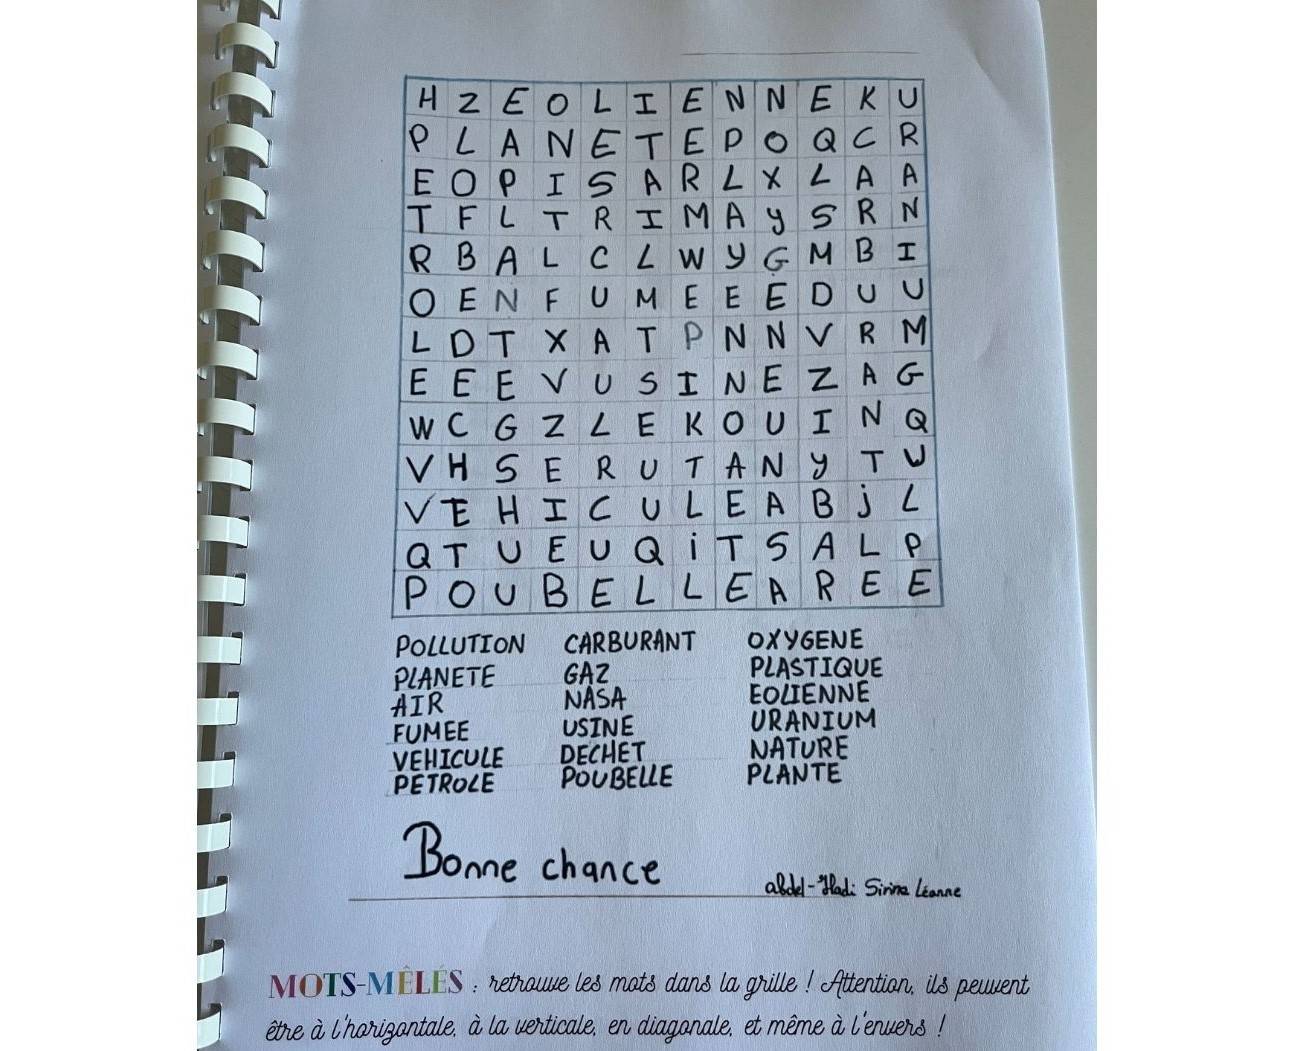 H Z E O L I E N N E K U
P L A N E T E P O Q C R
E O P I S A R L X L A A
T F L T R I M A y S R N
R B A L C L W y G M B I
O E N F U M E E E D U U
L D T X A T P N N V R M
E E E V U S I N E Z A G
W C G Z L E K O U I N Q
V H S E R U T A N y T W
V E H I C U L E A B j L
Q T U E U Q i T S A L P
P O U B E L L E A R E E
POLLUTION CARBURANT OXYGENE
PLANETE GAZ PLASTIQUE
AIR NASA EOLIENNE
FUMEE USINE URANIUM
VEHICULE DECHET NATURE
PETROLE POUBELLE PLANTE
Bonne chance
abdel-Hadi Sirina Léanne
MOTS-MÊLÉS : retrouve les mots dans la grille ! Attention, ils peuvent
être à l'horizontale, à la verticale, en diagonale, et même à l'envers !